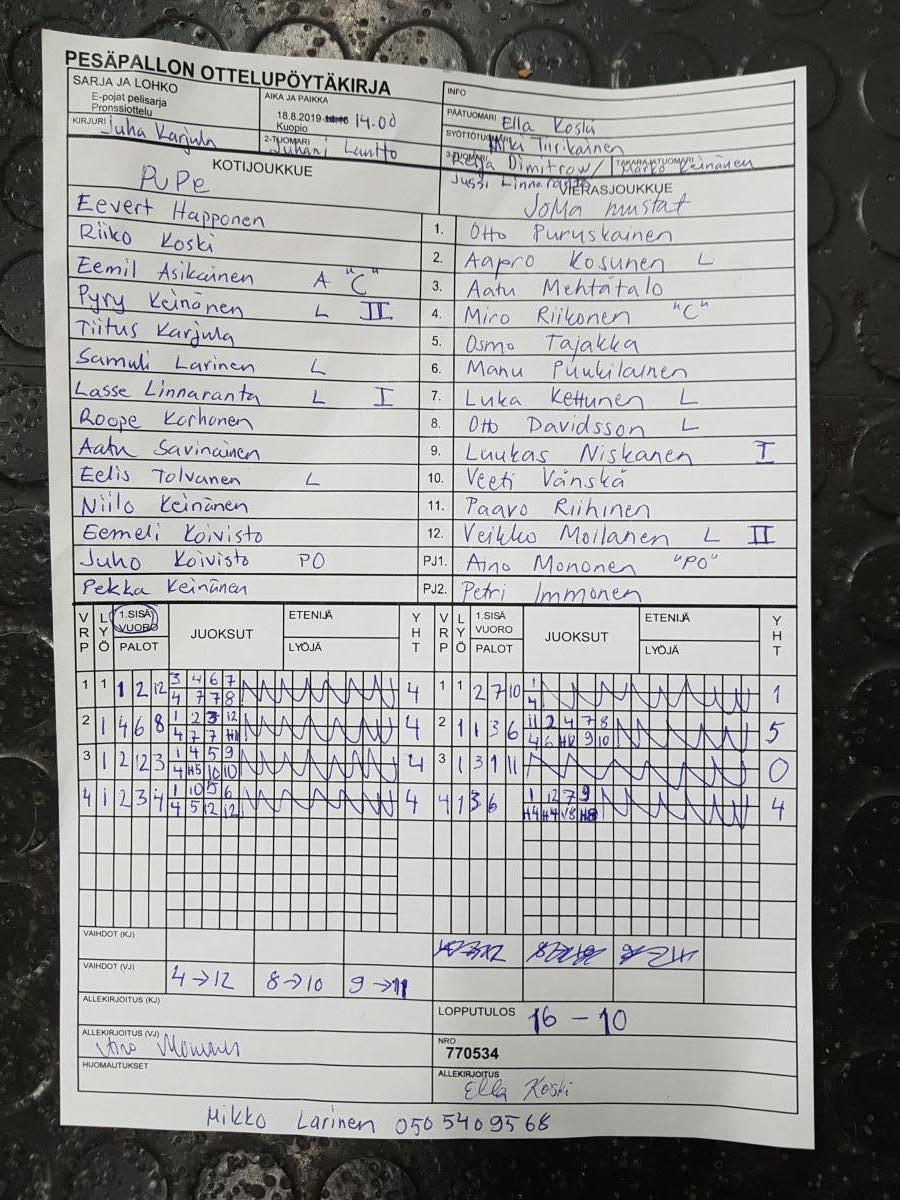 PESÄPALLON OTTELUPÖYTÄKIRJA
SARJA JA LOHKO
E-pojat pelisarja
Pronssiottelu
AIKA JA PAIKKA
18.8.2019 14.00
Kuopio
INFO
PÄÄTUOMARI Ella Koski
KIRJURI Juha Karjula
2-TUOMARI Juhani Lautto
SYÖTTÖTUOMARI Tiirikainen
3-TUOMARI Dimitrow/
TAKARAJATUOMARI Marko Keinänen
Jussi Linnaranta
KOTIJOUKKUE
PuPe
VIERASJOUKKUE
JoMa mustat
Eevert Happonen 1. Otto Puruskainen
Riiko Koski 2. Aapro Kosunen L
Eemil Asikainen A "C" 3. Aatu Mehtätalo
Pyry Keinänen L II 4. Miro Riikonen "C"
Tiitus Karjula 5. Osmo Tajakka
Samuli Larinen L 6. Manu Puukilainen
Lasse Linnaranta L I 7. Luka Kettunen L
Roope Korhonen 8. Otto Davidsson L
Aatu Savinainen 9. Luukas Niskanen I
Eelis Tolvanen L 10. Veeti Vänskä
Niilo Keinänen 11. Paavo Riihinen
Eemeli Koivisto 12. Veikko Moilanen L II
Juho Koivisto PO PJ1. Aino Mononen "PO"
Pekka Keinänen PJ2. Petri Immonen
VRP LYÖ 1.SISÄ VUORO PALOT JUOKSUT ETENIJÄ LYÖJÄ YHT VRP LYÖ 1.SISÄ VUORO PALOT JUOKSUT ETENIJÄ LYÖJÄ YHT
1 1 1 2 12 3 4 6 7 4 1 1 2 7 10 1 1
4 7 7 8 4
2 1 4 6 8 1 2 3 12 4 2 1 1 3 6 11 2 4 7 8 5
4 7 7 4 6 9 10
3 1 2 12 3 1 4 5 9 4 3 1 3 1 11 0
4 H5 10 10
4 1 2 3 4 1 10 5 6 4 4 1 3 6 1 12 7 9 4
4 5 12 12 H4 H4
VAIHDOT (KJ)
VAIHDOT (VJ) 4→12 8→10 9→11
ALLEKIRJOITUS (KJ)
LOPPUTULOS 16 - 10
ALLEKIRJOITUS (VJ)
NRO
770534
HUOMAUTUKSET
ALLEKIRJOITUS
Ella Koski
Mikko Larinen 050 5409568